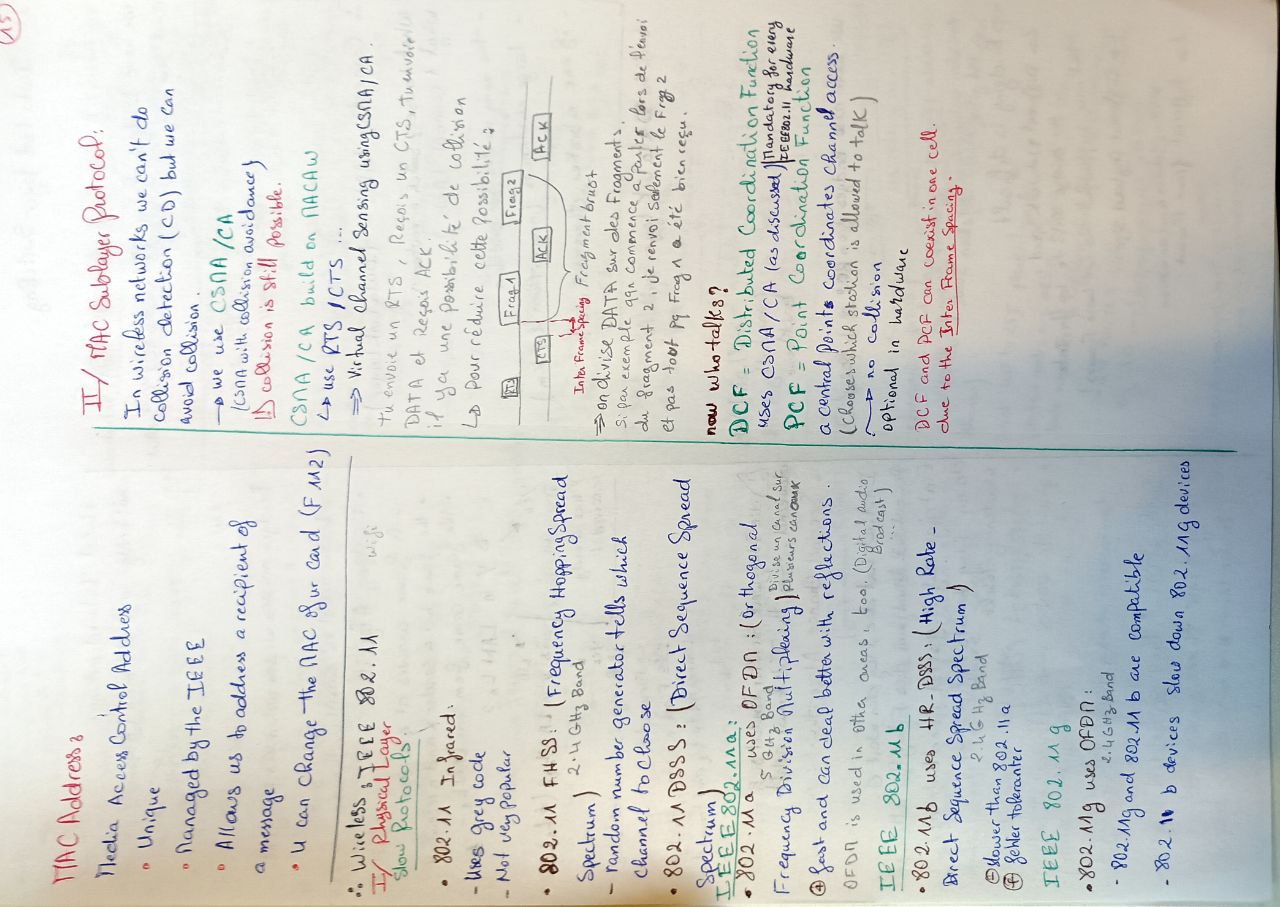 15
MAC Address:
Media Access Control Address
• Unique
• Managed by the IEEE
• Allows us to address a recipient of
a message
• u can change the MAC of ur card (F 112)
∴ Wireless: IEEE 802.11 wifi
I/ Physical Layer
Slow Protocols:
• 802.11 Infrared:
- Uses grey code
- Not very popular
• 802.11 FHSS: (Frequency Hopping Spread
Spectrum) 2.4 GHz Band
- random number generator tells which
channel to choose
• 802.11 DSSS: (Direct Sequence Spread
Spectrum)
IEEE 802.11a:
• 802.11a uses OFDM: (Orthogonal
5 GHz Band
Frequency Division Multiplexing) Divise un canal sur
plusieurs canaux
⊕ fast and can deal better with reflections.
OFDM is used in other areas, too. (Digital audio
Brodcast)
....
IEEE 802.11b
• 802.11b uses HR-DSSS: (High Rate -
Direct Sequence Spread Spectrum)
2.4 GHz Band
⊖ slower than 802.11a
⊕ fehler toleranter
IEEE 802.11g
• 802.11g uses OFDM:
2.4 GHz Band
- 802.11g and 802.11b are compatible
- 802.11b devices slow down 802.11g devices
II/ MAC Sublayer Protocol:
In wireless networks we can't do
collision detection (CD) but we can
avoid collision.
→ we use CSMA/CA
(CSMA with collision avoidance)
↳ collision is still possible.
CSMA/CA build on MACAW
↳ use RTS/CTS ...
⇒ Virtual channel Sensing using CSMA/CA.
Tu envoie un RTS, Reçois un CTS, tu envoie
DATA et Reçois ACK.
il ya une possibilité de collision
↳ pour réduire cette possibilité:
RTS Frag 1 Frag 2
CTS ACK ACK
Inter Frame Spacing Fragment burst
⇒ on divise DATA sur des Fragments.
Si par exemple qqn commence a parler lors de l'envoi
du fragment 2, je renvoi seulement le Frag 2
et pas tout pq Frag 1 a été bien reçu.
now who talks?
DCF = Distributed Coordination Function
uses CSMA/CA (as discussed) Mandatory for every
IEEE802.11 hardware
PCF = Point Coordination Function
a central points coordinates channel access.
(chooses which station is allowed to talk)
→ no collision
optional in hardware
DCF and PCF can coexist in one cell.
due to the Inter Frame Spacing.